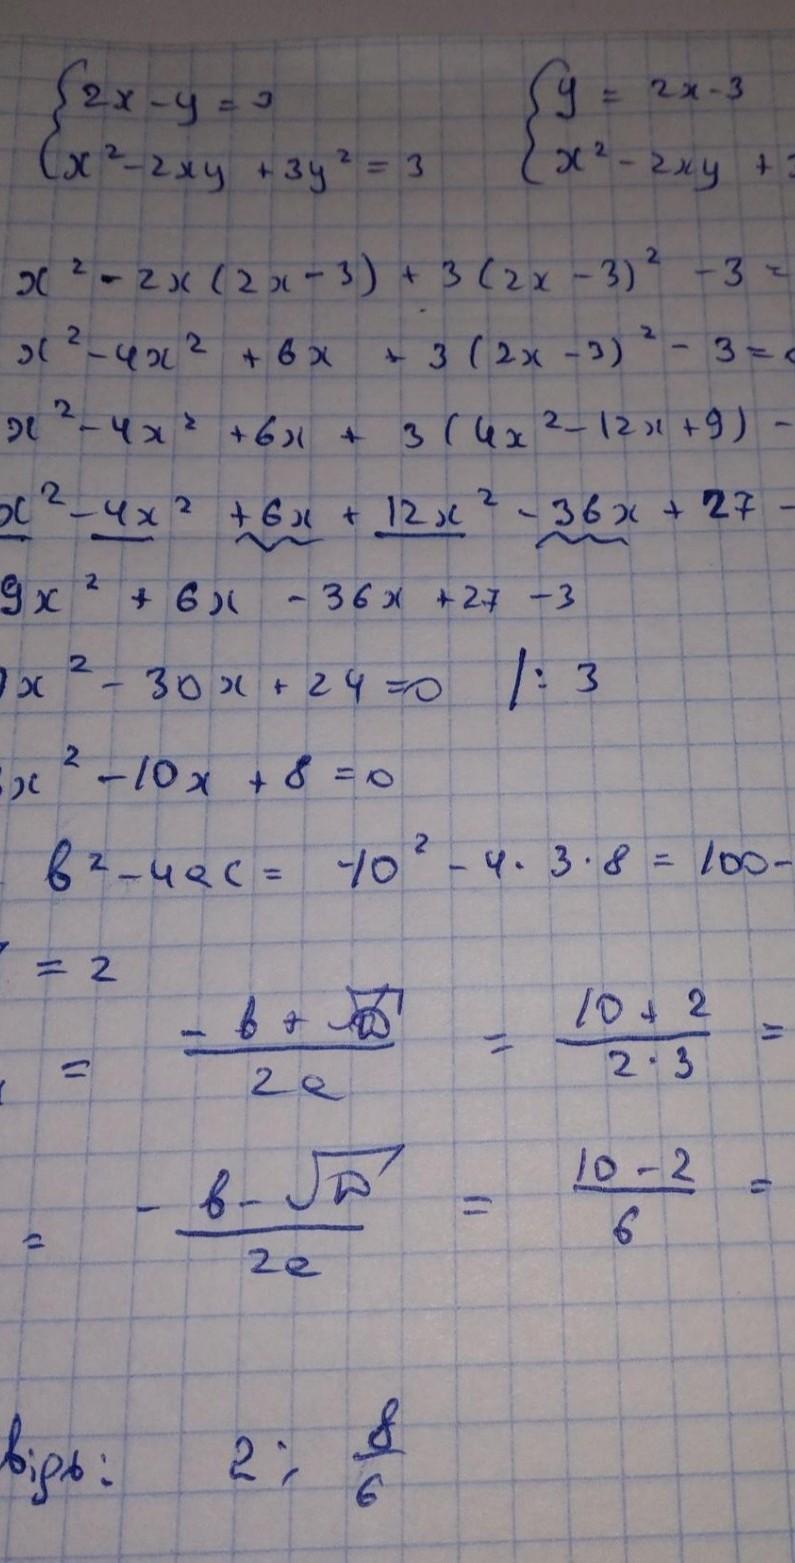 {2x - y = 3 {y = 2x - 3
{x² - 2xy + 3y² = 3 {x² - 2xy +
x² - 2x(2x - 3) + 3(2x - 3)² - 3 =
x² - 4x² + 6x + 3(2x - 3)² - 3 =
x² - 4x² + 6x + 3(4x² - 12x + 9) -
x² - 4x² + 6x + 12x² - 36x + 27 -
9x² + 6x - 36x + 27 - 3
x² - 30x + 24 = 0 /: 3
x² - 10x + 8 = 0
b² - 4ac = -10² - 4·3·8 = 100 -
= 2
= (-b + √D)/(2a) = (10 + 2)/(2·3) =
= (-b - √D)/(2a) = (10 - 2)/6 =
відь: 2; 8/6